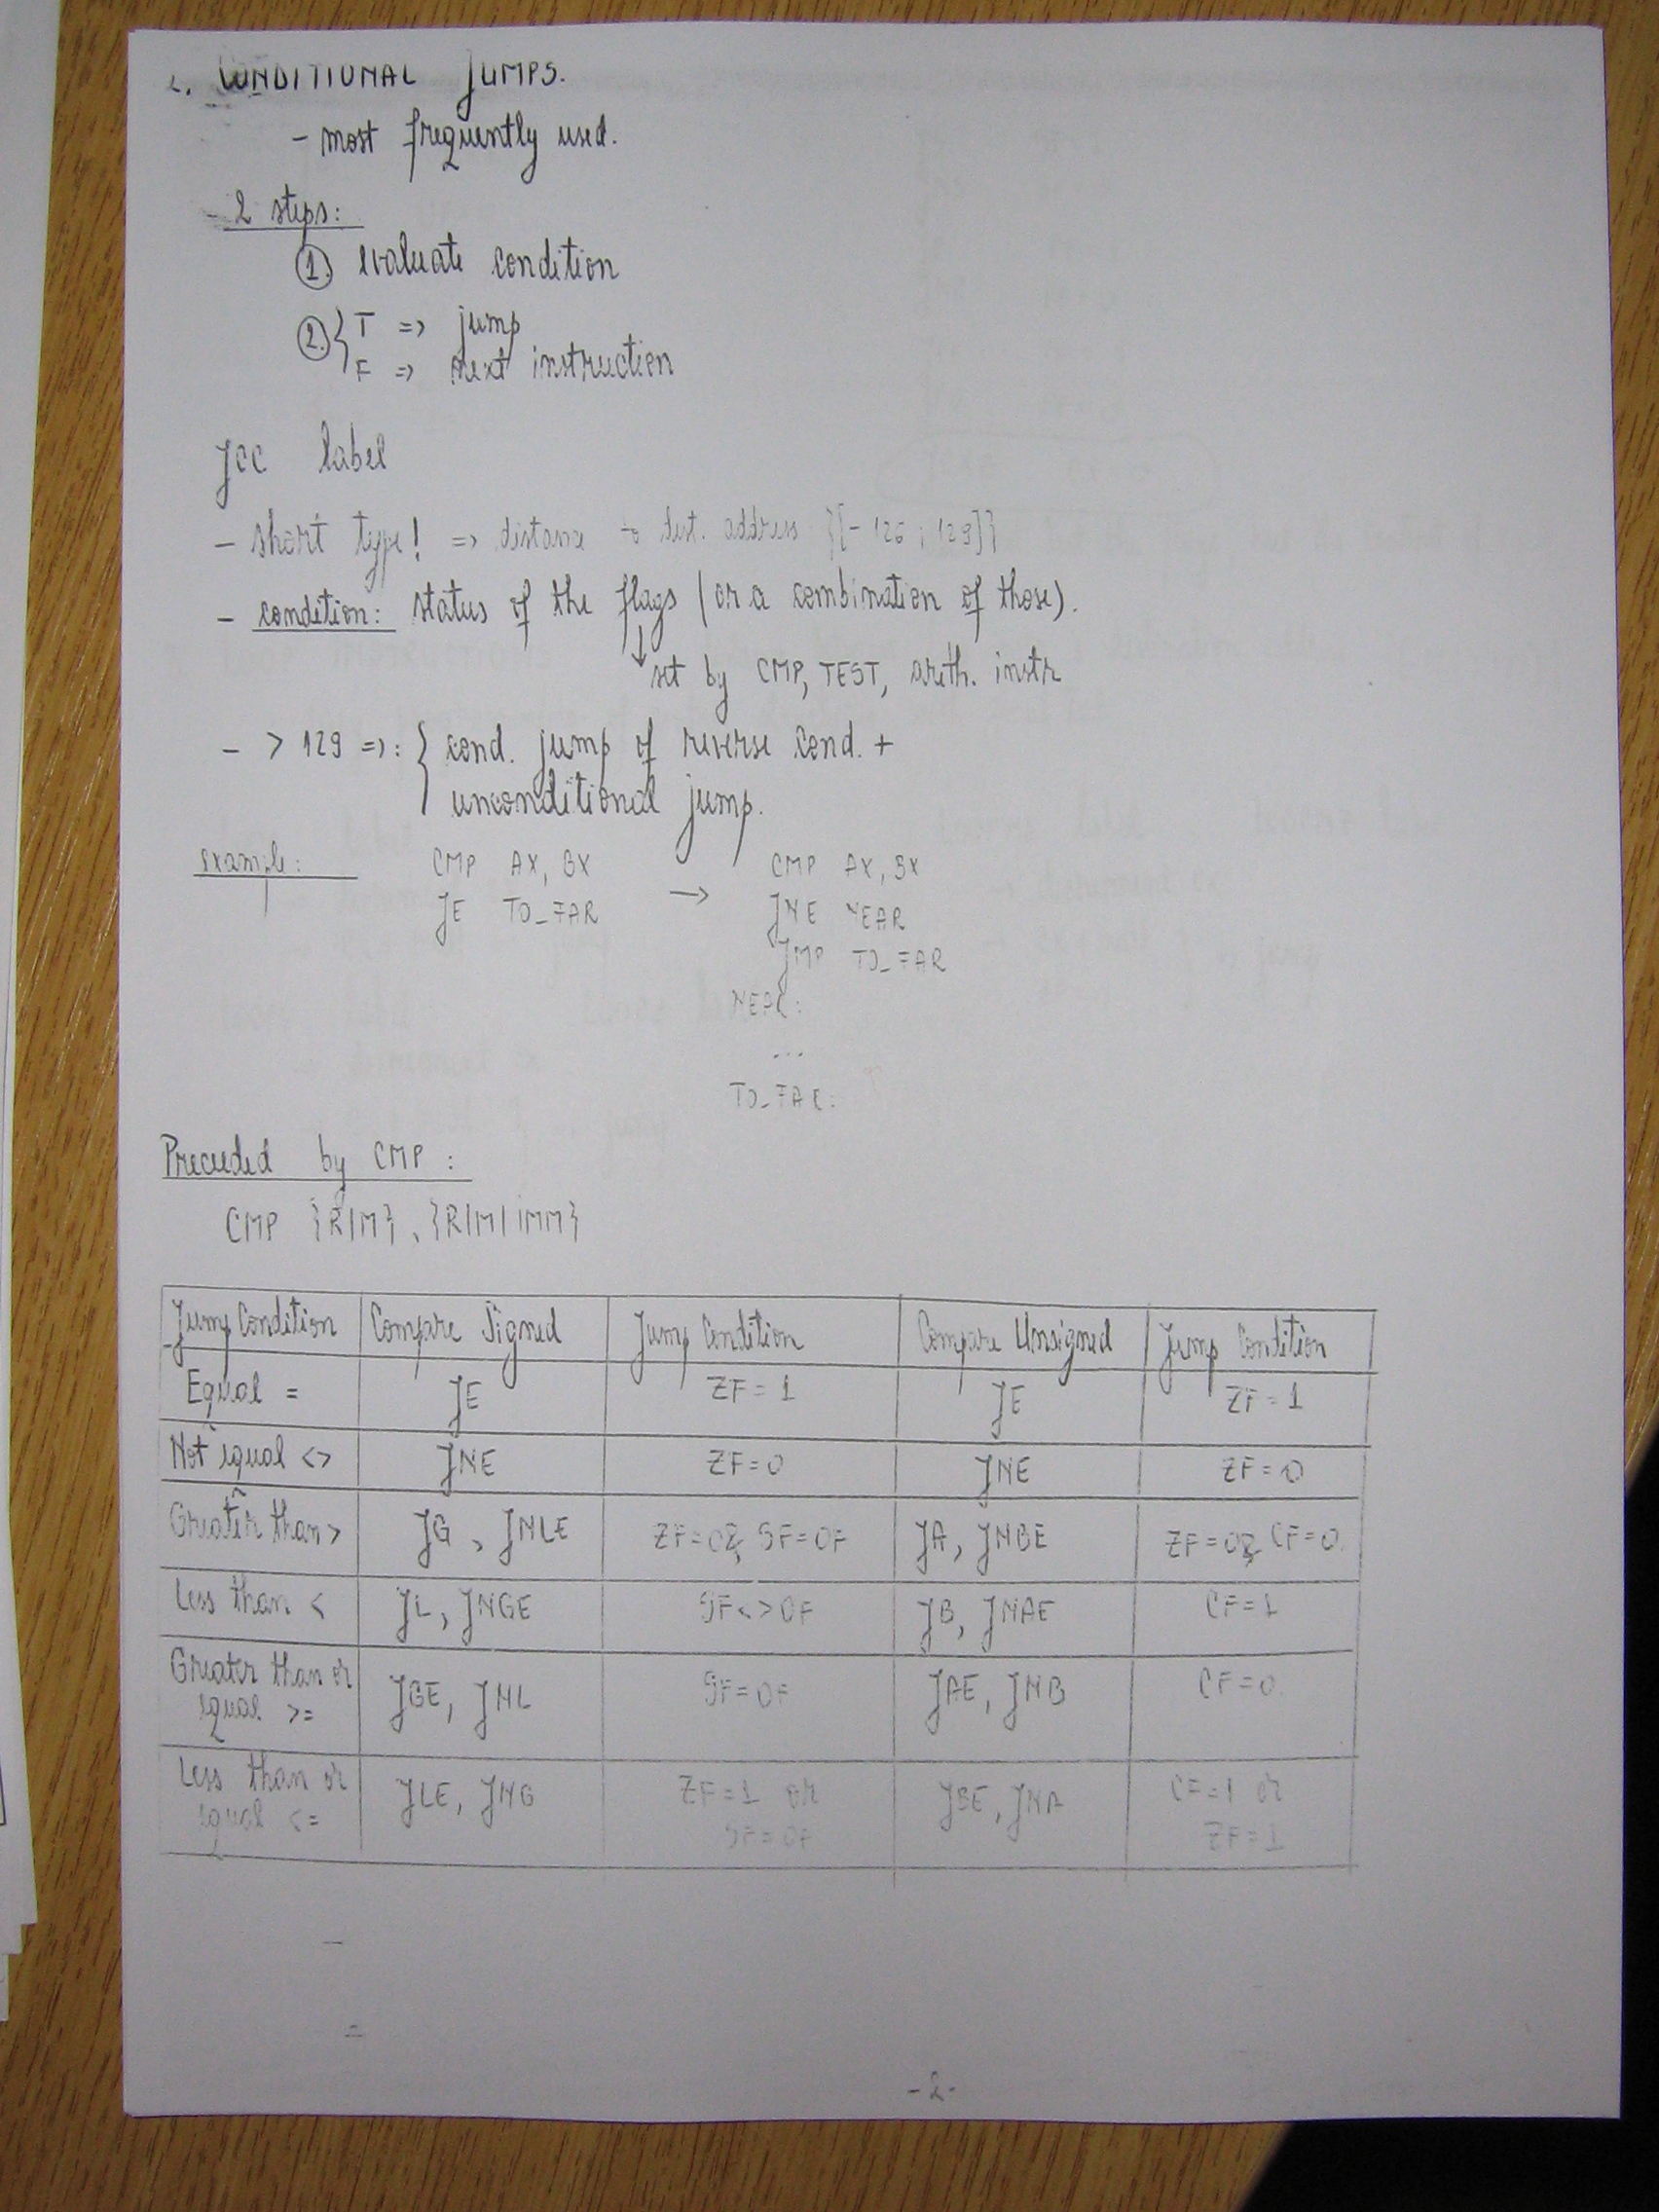 2. CONDITIONAL JUMPS.
- most frequently used.
- 2 steps:
1. evaluate condition
2. { T => jump
F => next instruction
JCC label
- short type! => distance to dest. address {[-126 ; 129]}
- condition: status of the flags (or a combination of those).
↓ set by CMP, TEST, arith. instr
- > 129 =>: { cond. jump of reverse cond. +
unconditional jump.
example: CMP AX, BX → CMP AX, BX
JE TO_FAR JNE NEAR
JMP TO_FAR
NEAR:
...
TO_FAR:
Preceeded by CMP:
CMP {R|M}, {R|M|IMM}
Jump Condition Compare Signed Jump Condition Compare Unsigned Jump Condition
Equal = JE ZF=1 JE ZF=1
Not equal <> JNE ZF=0 JNE ZF=0
Greater than > JG, JNLE ZF=0 & SF=OF JA, JNBE ZF=0 & CF=0
Less than < JL, JNGE SF<>OF JB, JNAE CF=1
Greater than or JGE, JNL SF=OF JAE, JNB CF=0
equal >=
Less than or JLE, JNG ZF=1 or JBE, JNA CF=1 or
equal <= SF=OF ZF=1
-2-